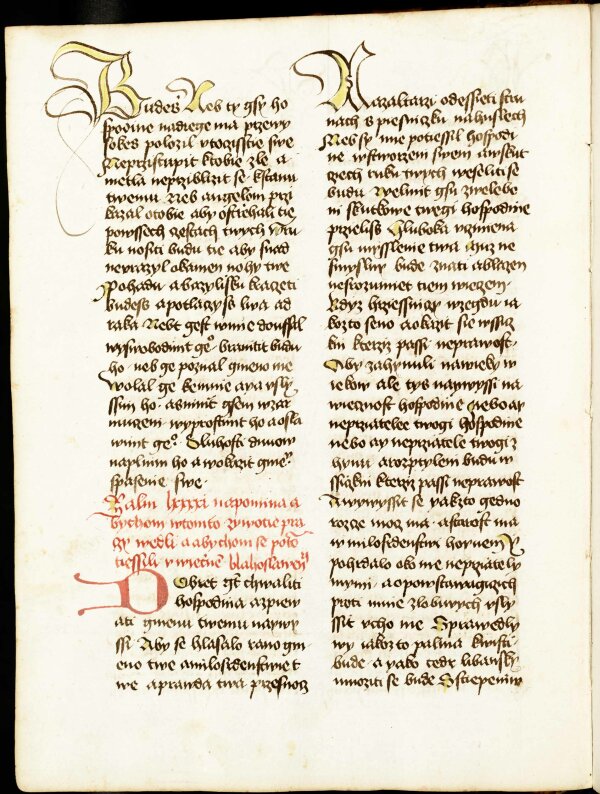 Budeš Neb ty gsy ho
spodine nadiege ma przewy
sokes polozil vtocisstie swe
Neprzistupit ktobie zle a
metla neprziblizit se kstanu
twemu Neb angelom przi
kazal otobie aby ostriehali tie
powssech czestach twych
ku nositi budu tie aby snad
neurazyl okamen nohy twe
Pohadu abazylisku kraczeti
budess apotlaczyss lwa ad
raka Nebt gest wmie douffal
wyswobodimt geº branitit budu
ho neb ge poznal gmeno me
Wolal ge kemnie aya vsly
ssim ho asnimt gsem wzar
muczeni wyprostimt ho aosla
wimt geº Dluhosti dnuow
naplnim ho a wokazit gmeº
spasenie swe
Zalm lxxxxi napomina a
bychom wtomto zywotie pra
zy wedli a abychom se poto
tiessili v wiečne blahoslaven
Dobret gt chwaliti
hospodina azpiew
ati gmenu twemu naywy
ssi Aby se hlasalo rano gm
eno twe amilosrdenstwie t
we aprawda twa przesnocz
Nazaltarzi odesseti stru
nach s piesniczku nahuslech
Neb sy mie potiessil hospodi
ne wstworzeni swem awskut
czech ruku twych weseliti se
budu Welmit gsu zwelebe
ni skutkowe twogi hospodine
przielis hluboka vczinena
gsu mysslenie twa Muz ne
smyslny bude znati ablazen
nesrozumet tiem wieczem
Kdyz hrziessniczy wzegdu ia
kozto seno aokazit sie wssicz
kni kterzyz passi neprawost
Aby zahynuli nawieky w
iekow ale tys naywyssi na
wiecznost hospodine Nebo ay
neprzatelee twogi hospodine
nebo ay neprzatele twogi z
hynu arozptyleni budu w
ssickni kterzyz passi neprawost
Awywyssit se yakzto gedno
rozcze moc ma astarost ma
w milosrdenstwi hoynem
pohrdalo oko me neprzately
mymi aopowstawagiczych
proti mnie zlobiwych vsly
ssit vcho me Sprawedly
wy iakozto palma kwisti
bude a yako cedr libansky
mnoziti se bude Sstiepenim